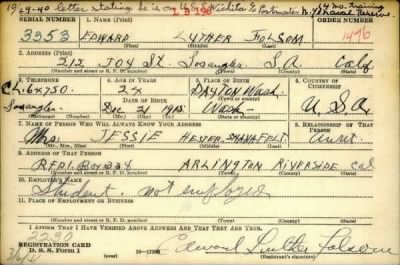 19-9-40 letter stating he is on U.S.S. Wichita % Postmaster N.Y.
4 mo. training
Naval Reserves
SERIAL NUMBER
1. NAME (Print)
ORDER NUMBER
3353
EDWARD LUTHER FOLSOM
1496
(First) (Middle) (Last)
2. ADDRESS (Print)
212 JOY St. Losangles L.A. Calif
(Number and street or R. F. D. number) (Town) (County) (State)
3. TELEPHONE
4. AGE IN YEARS
5. PLACE OF BIRTH
6. COUNTRY OF CITIZENSHIP
CL. 6x750
DAYTON Wash.
DATE OF BIRTH
(Town or county)
Losangles
Dec 21
Wash
U.S.A.
(Exchange) (Number)
(Mo.) (Day) (Yr.)
(State or country)
7. NAME OF PERSON WHO WILL ALWAYS KNOW YOUR ADDRESS
8. RELATIONSHIP OF THAT PERSON
Mrs. JESSIE HESTER SHANAFELT
Aunt
(Mr., Mrs., Miss) (First) (Middle) (Last)
9. ADDRESS OF THAT PERSON
RFD1 Box 334 ARLINGTON RIVERSIDE Cal
(Number and street or R. F. D. number) (Town) (County) (State)
10. EMPLOYER'S NAME
Student. not employed
11. PLACE OF EMPLOYMENT OR BUSINESS
(Number and street or R. F. D. number) (Town) (County) (State)
I AFFIRM THAT I HAVE VERIFIED ABOVE ANSWERS AND THAT THEY ARE TRUE.
REGISTRATION CARD
D. S. S. Form 1
Edward Luther Folsom
(Registrant's signature)